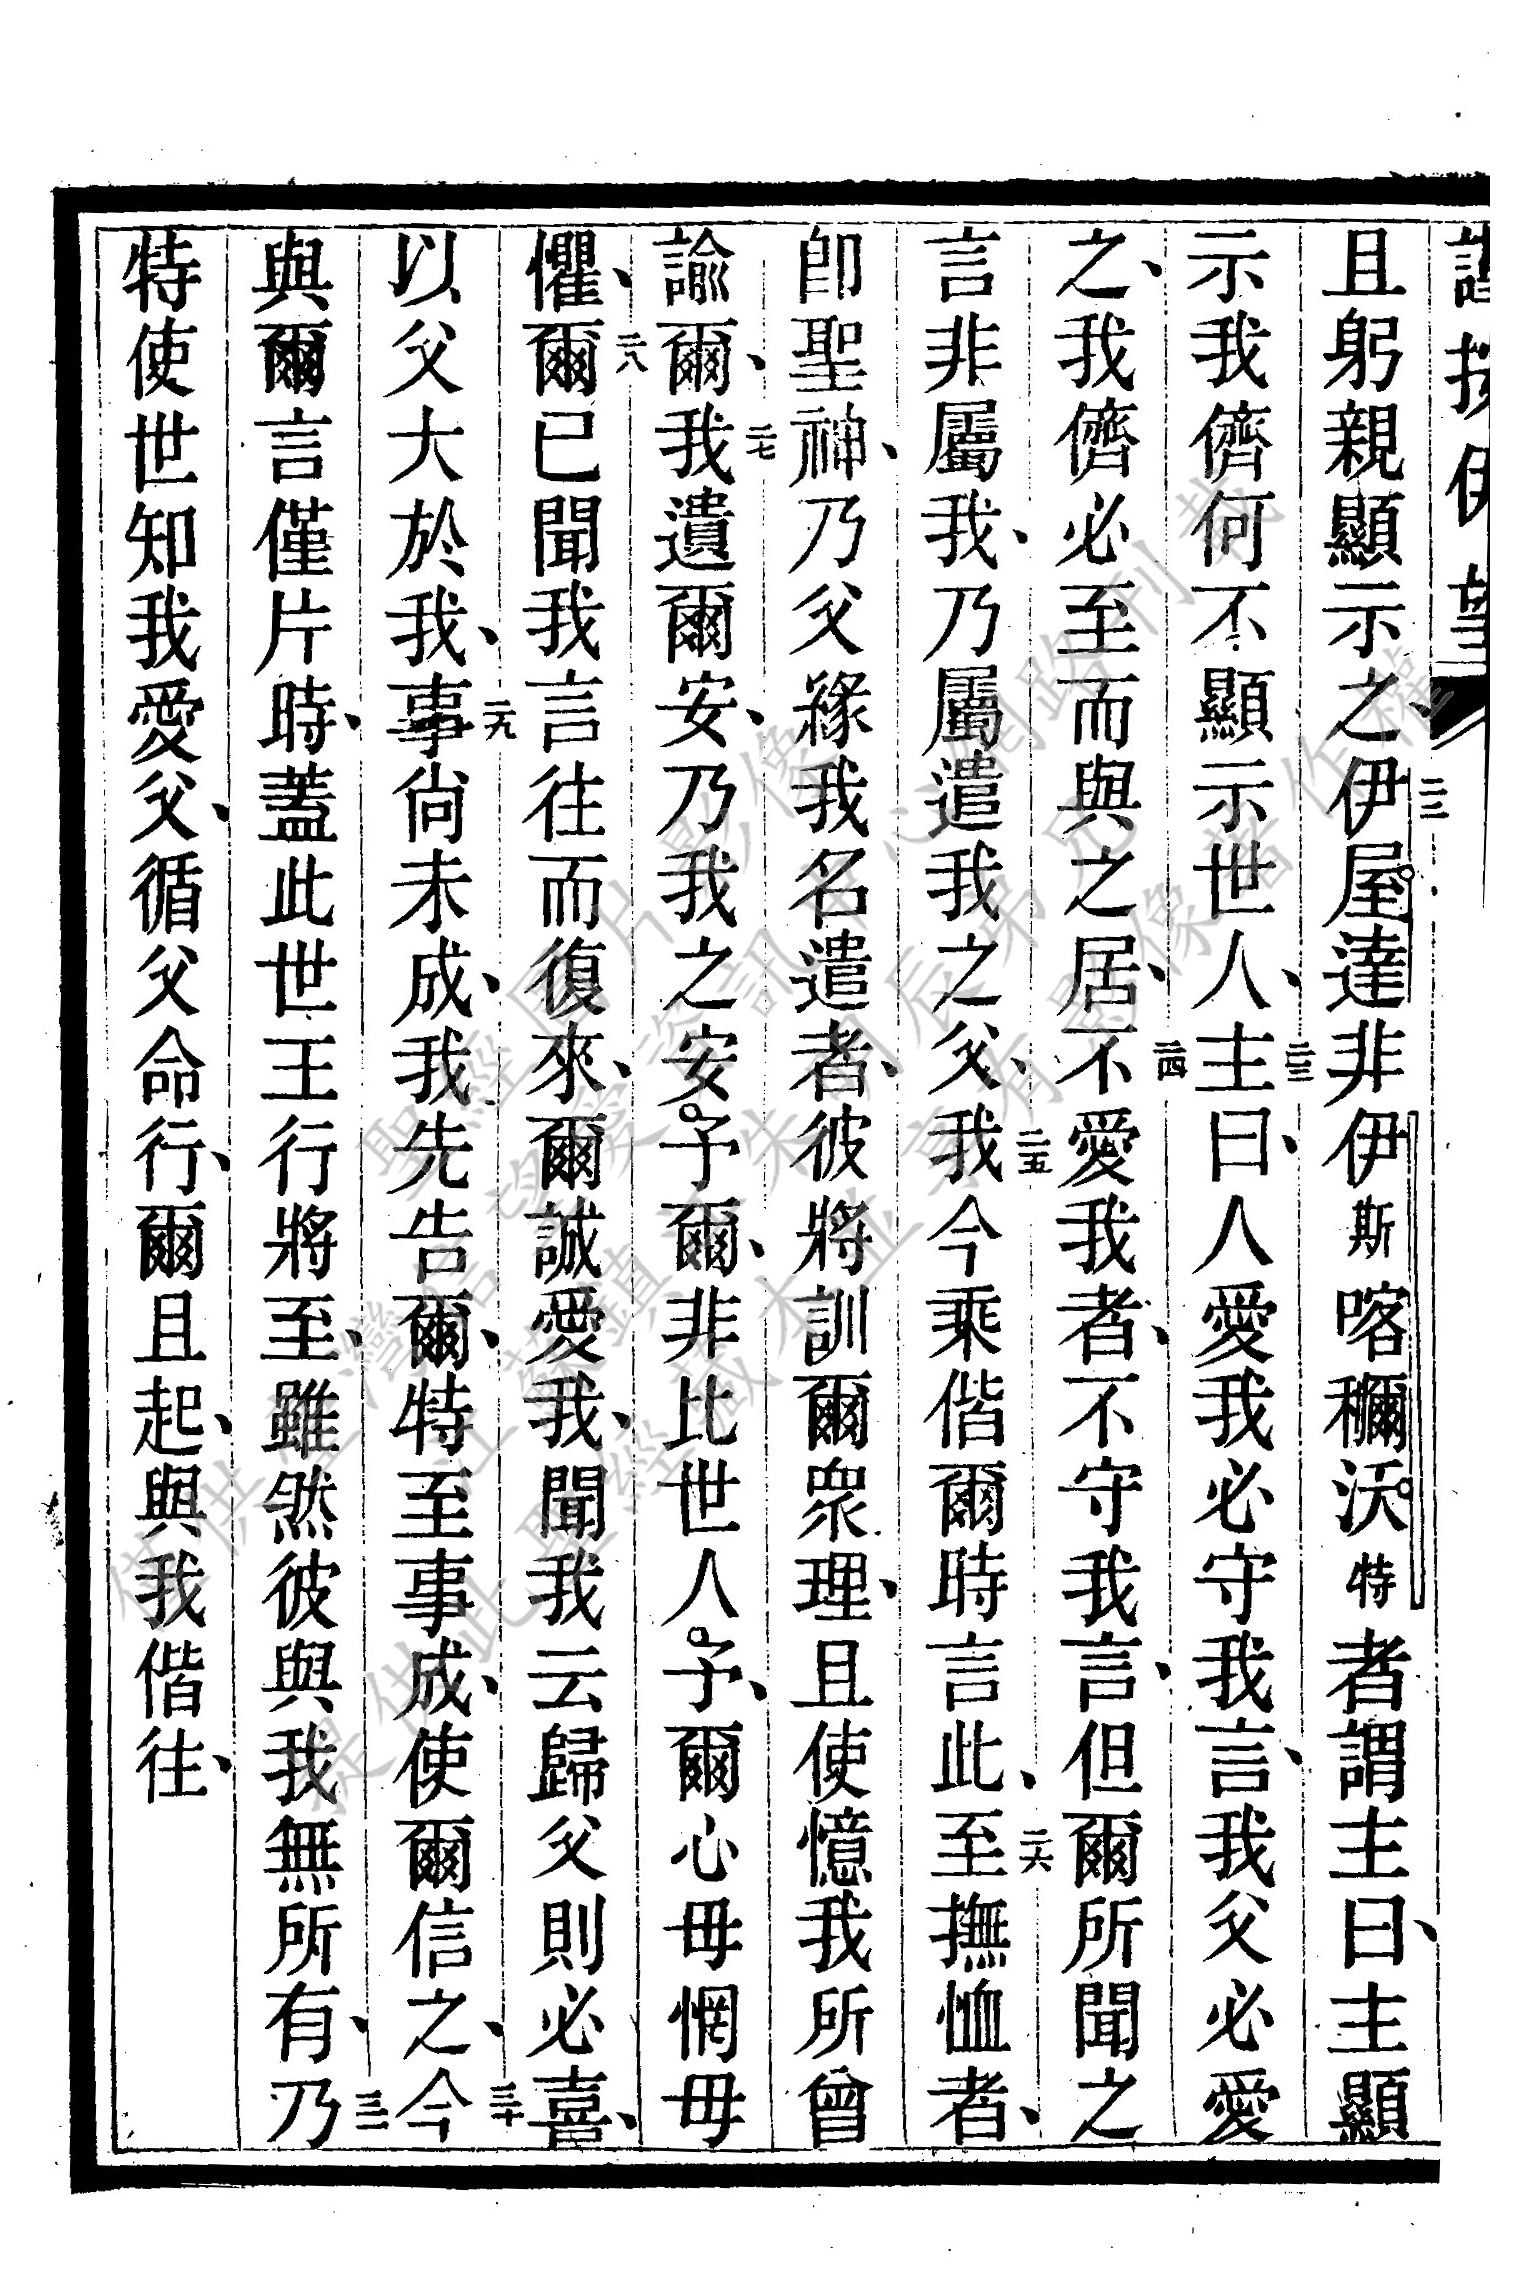 且躬親顯示之、二二伊屋達非伊斯喀穪沃特者謂主曰、主顯
示我儕何不顯示世人、二三主曰、人愛我必守我言、我父必愛
之、我儕必至而與之居、二四不愛我者、不守我言、但爾所聞之
言非屬我、乃屬遣我之父、二五我今乘偕爾時言此、二六至撫恤者、
卽聖神、乃父緣我名遣者、彼將訓爾衆理、且使憶我所曾
諭爾、二七我遺爾安、乃我之安予爾、非比世人予、爾心毋惘毋
懼、二八爾已聞我言往而復來、爾誠愛我、聞我云歸父則必喜、
以父大於我、二九事尙未成、我先告爾、特至事成、使爾信之、三十今
與爾言僅片時、蓋此世王行將至、雖然彼與我無所有、三一乃
特使世知我愛父、循父命行、爾且起、與我偕往、